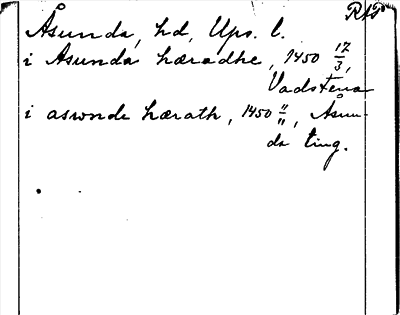 RAP
Åsunda, hd, Ups. l.
i Asunda hæradhe, 1450 17/3,
Vadstena
i aswnde hærath, 1450 "/", Åsun-
da ting.